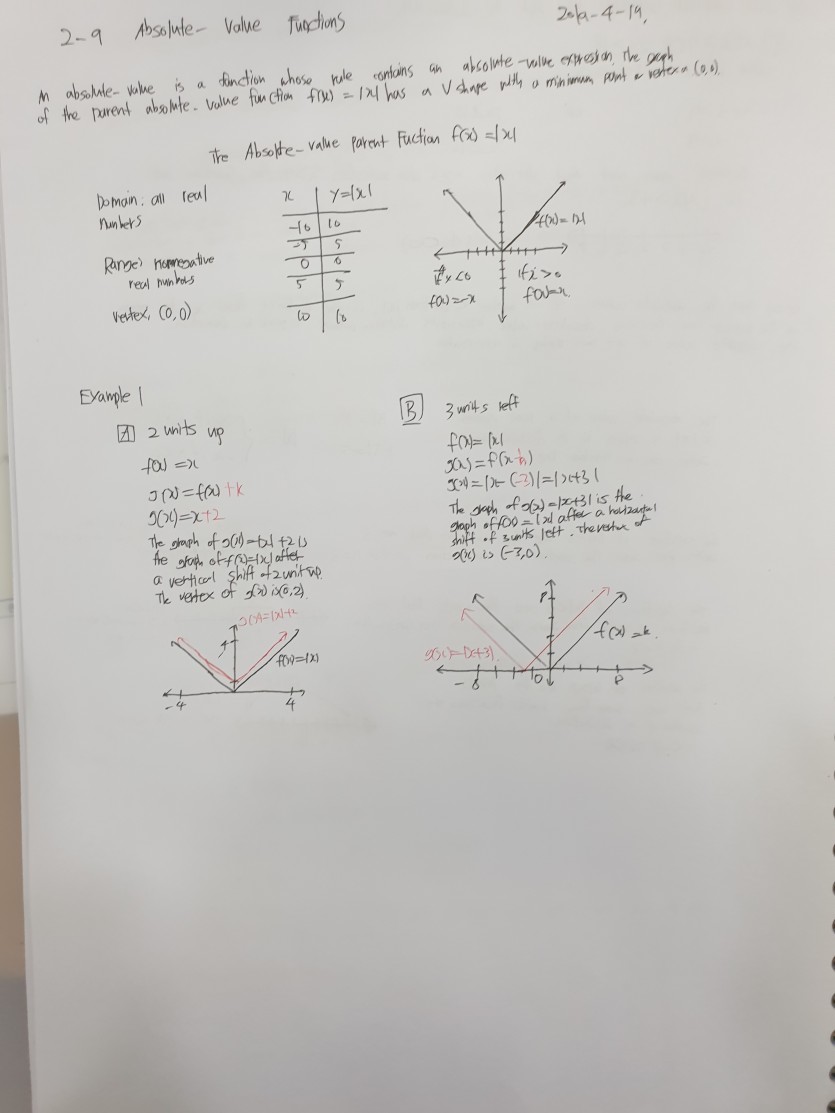 2-9 Absolute- Value Functions
2019-4-19,
An absolute-value is a function whose rule contains an absolute-value expression, The graph
of the parent absolute-value function f(x) = |x| has a V shape with a minimum point or vertex (0,0).
The Absolute-value parent Fuction f(x)=|x|
Domain: all real
numbers
Range: nonnegative
real numbers
vertex, (0,0)
x y=|x|
-10 10
-5 5
0 0
5 5
10 10
f(x)=|x|
if x<0
f(x)=-x
if x>0
f(x)=x
Example 1
A 2 units up
f(x)=x
g(x)=f(x)+k
g(x)=x+2
The graph of g(x)=|x|+2 is
the graph of f(x)=|x| after
a vertical shift of 2 unit up.
The vertex of g(x) is (0,2)
f(x)=|x|
-4
4
B 3 units left
f(x)=|x|
g(x)=f(x-h)
g(x)=|x-(-3)|=|x+3|
The graph of g(x)=|x+3| is the
graph of f(x)=|x| after a horizontal
shift of 3 units left. The vertex of
g(x) is (-3,0).
g(x)=|x+3|
-8
0